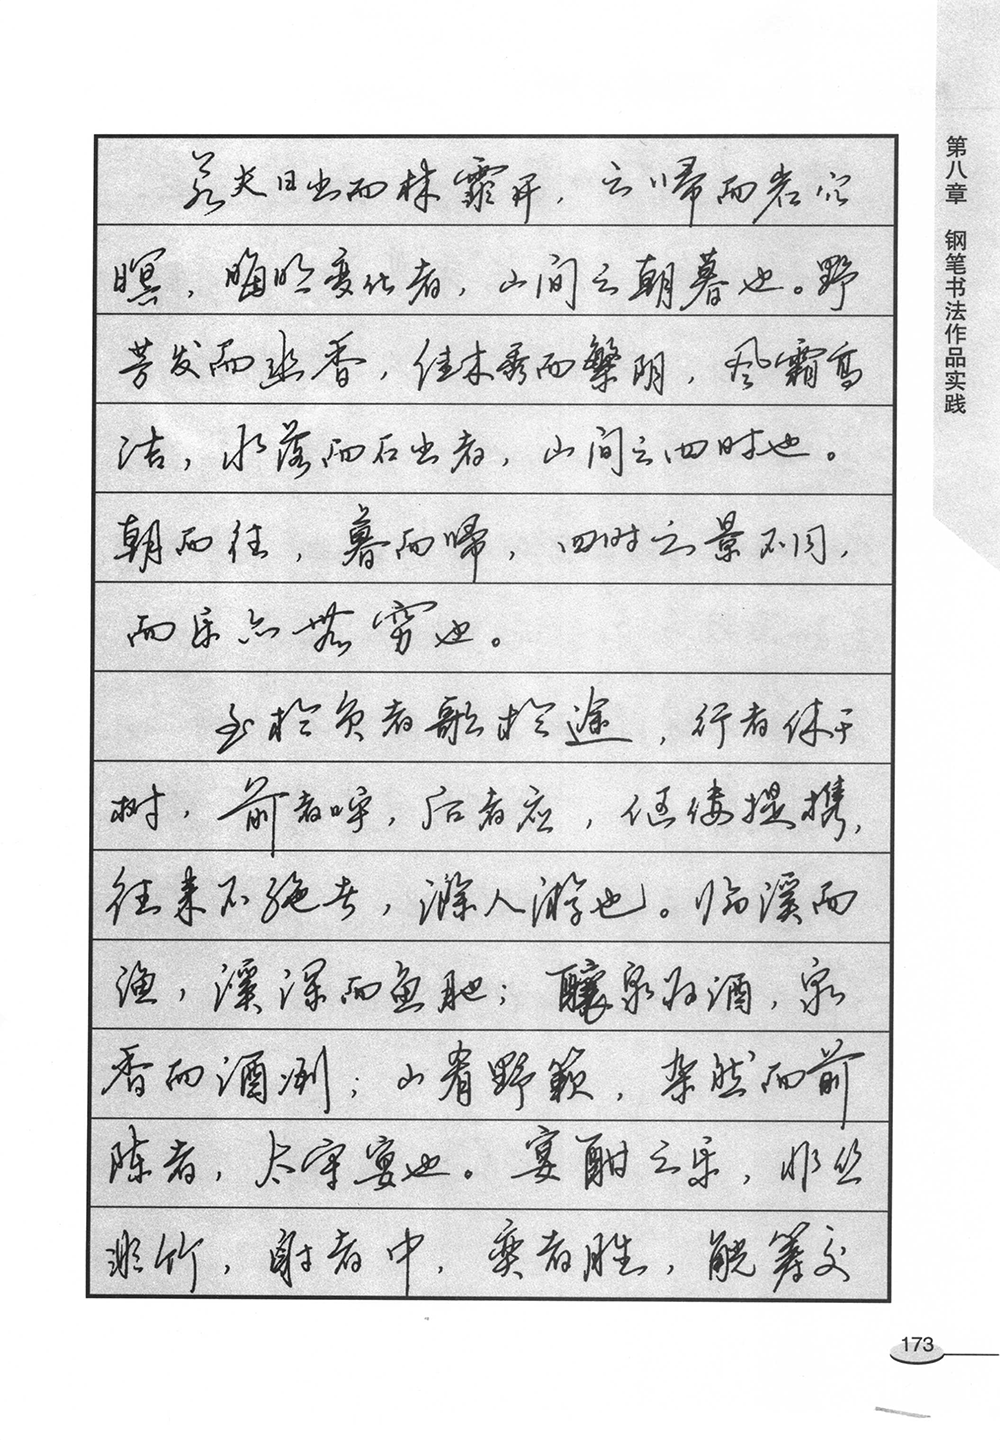 若夫日出而林霏开，云归而岩穴
暝，晦明变化者，山间之朝暮也。野
芳发而幽香，佳木秀而繁阴，风霜高
洁，水落而石出者，山间之四时也。
朝而往，暮而归，四时之景不同，
而乐亦无穷也。
至於负者歌於途，行者休于
树，前者呼，后者应，伛偻提携，
往来不绝者，滁人游也。临溪而
渔，溪深而鱼肥；酿泉为酒，泉
香而酒洌；山肴野蔌，杂然而前
陈者，太守宴也。宴酣之乐，非丝
非竹，射者中，奕者胜，觥筹交
第八章 钢笔书法作品实践
173